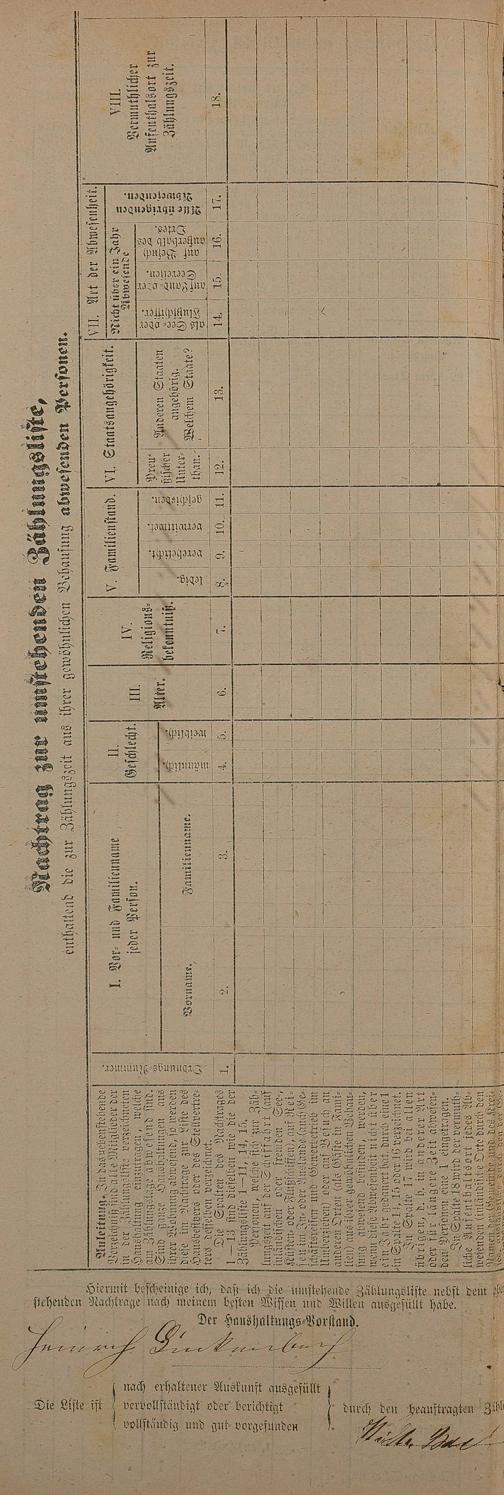 Nachtrag zur umstehenden Zählungsliste,
enthaltend die zur Zählungszeit aus ihrer gewöhnlichen Behausung abwesenden Personen.
Anleitung. In das nebenstehende
Verzeichniß sind alle Mitglieder der
in der Zählungsliste verzeichneten
Haushaltung einzutragen, welche
am Zählungstage abwesend sind.
Sind ganze Haushaltungen aus
ihrer Wohnung abwesend, so werden
diese im Nachtrage zur Liste des
Hausbesitzers oder des Stellvertre-
ters desselben verzeichnet.
Die Spalten des Nachtrages
1—13 sind dieselben wie die der
Zählungsliste 1—11, 14, 15.
Personen, welche sich zur Zäh-
lungszeit auf der Schifffahrt (auf
inländischen oder fremden See-,
Küsten- oder Flußschiffen), auf Rei-
sen im In- oder Auslande (auch Ge-
schäftsreisen und Gewerbebetrieb im
Umherziehen) oder auf Besuch an
anderen Orten (als Gäste in Fami-
lien) aus ihrer gewöhnlichen Behau-
sung abwesend befinden, werden,
wenn diese Abwesenheit nicht über
ein Jahr gedauert hat, durch eine 1
in Spalte 14, 15 oder 16 verzeichnet.
In Spalte 17 wird bei allen
übrigen, also in anderer Art
oder für längere Zeit abwesen-
den Personen eine 1 eingetragen.
In Spalte 18 wird der vermuth-
liche Aufenthaltsort jedes Ab-
wesenden, für inländische Orte durch den
Ordnungs-Nummer.
I. Vor- und Familienname
jeder Person.
Vorname.
Familienname.
II.
Geschlecht.
männlich.
weiblich.
III.
Alter.
IV.
Religions-
bekenntniß.
V. Familienstand.
ledig.
verehelicht.
verwittwet.
geschieden.
VI. Staatsangehörigkeit.
Preu-
ßischer
Unter-
than.
Anderen Staaten
angehörig.
Welchem Staate?
VII. Art der Abwesenheit.
Nicht über ein Jahr
Abwesende
als See- oder
Flußschiffer.
auf Land- oder
Seereisen.
auf Besuch
außerhalb des
Ortes.
Alle übrigenden
Abwesenden
VIII.
Vermuthlicher
Aufenthaltsort zur
Zählungszeit.
1. 2. 3. 4. 5. 6. 7. 8. 9. 10. 11. 12. 13. 14. 15. 16. 17. 18.
Hiermit bescheinige ich, daß ich die umstehende Zählungsliste nebst dem
stehenden Nachtrage nach meinem besten Wissen und Willen ausgefüllt habe.
Der Haushaltungs-Vorstand.
Heinrich
Die Liste ist
nach erhaltener Auskunft ausgefüllt
vervollständigt oder berichtigt
vollständig und gut vorgefunden
durch den beauftragten